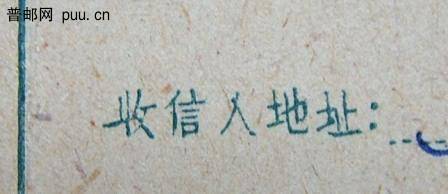 普邮网 puu.cn
收信人地址: